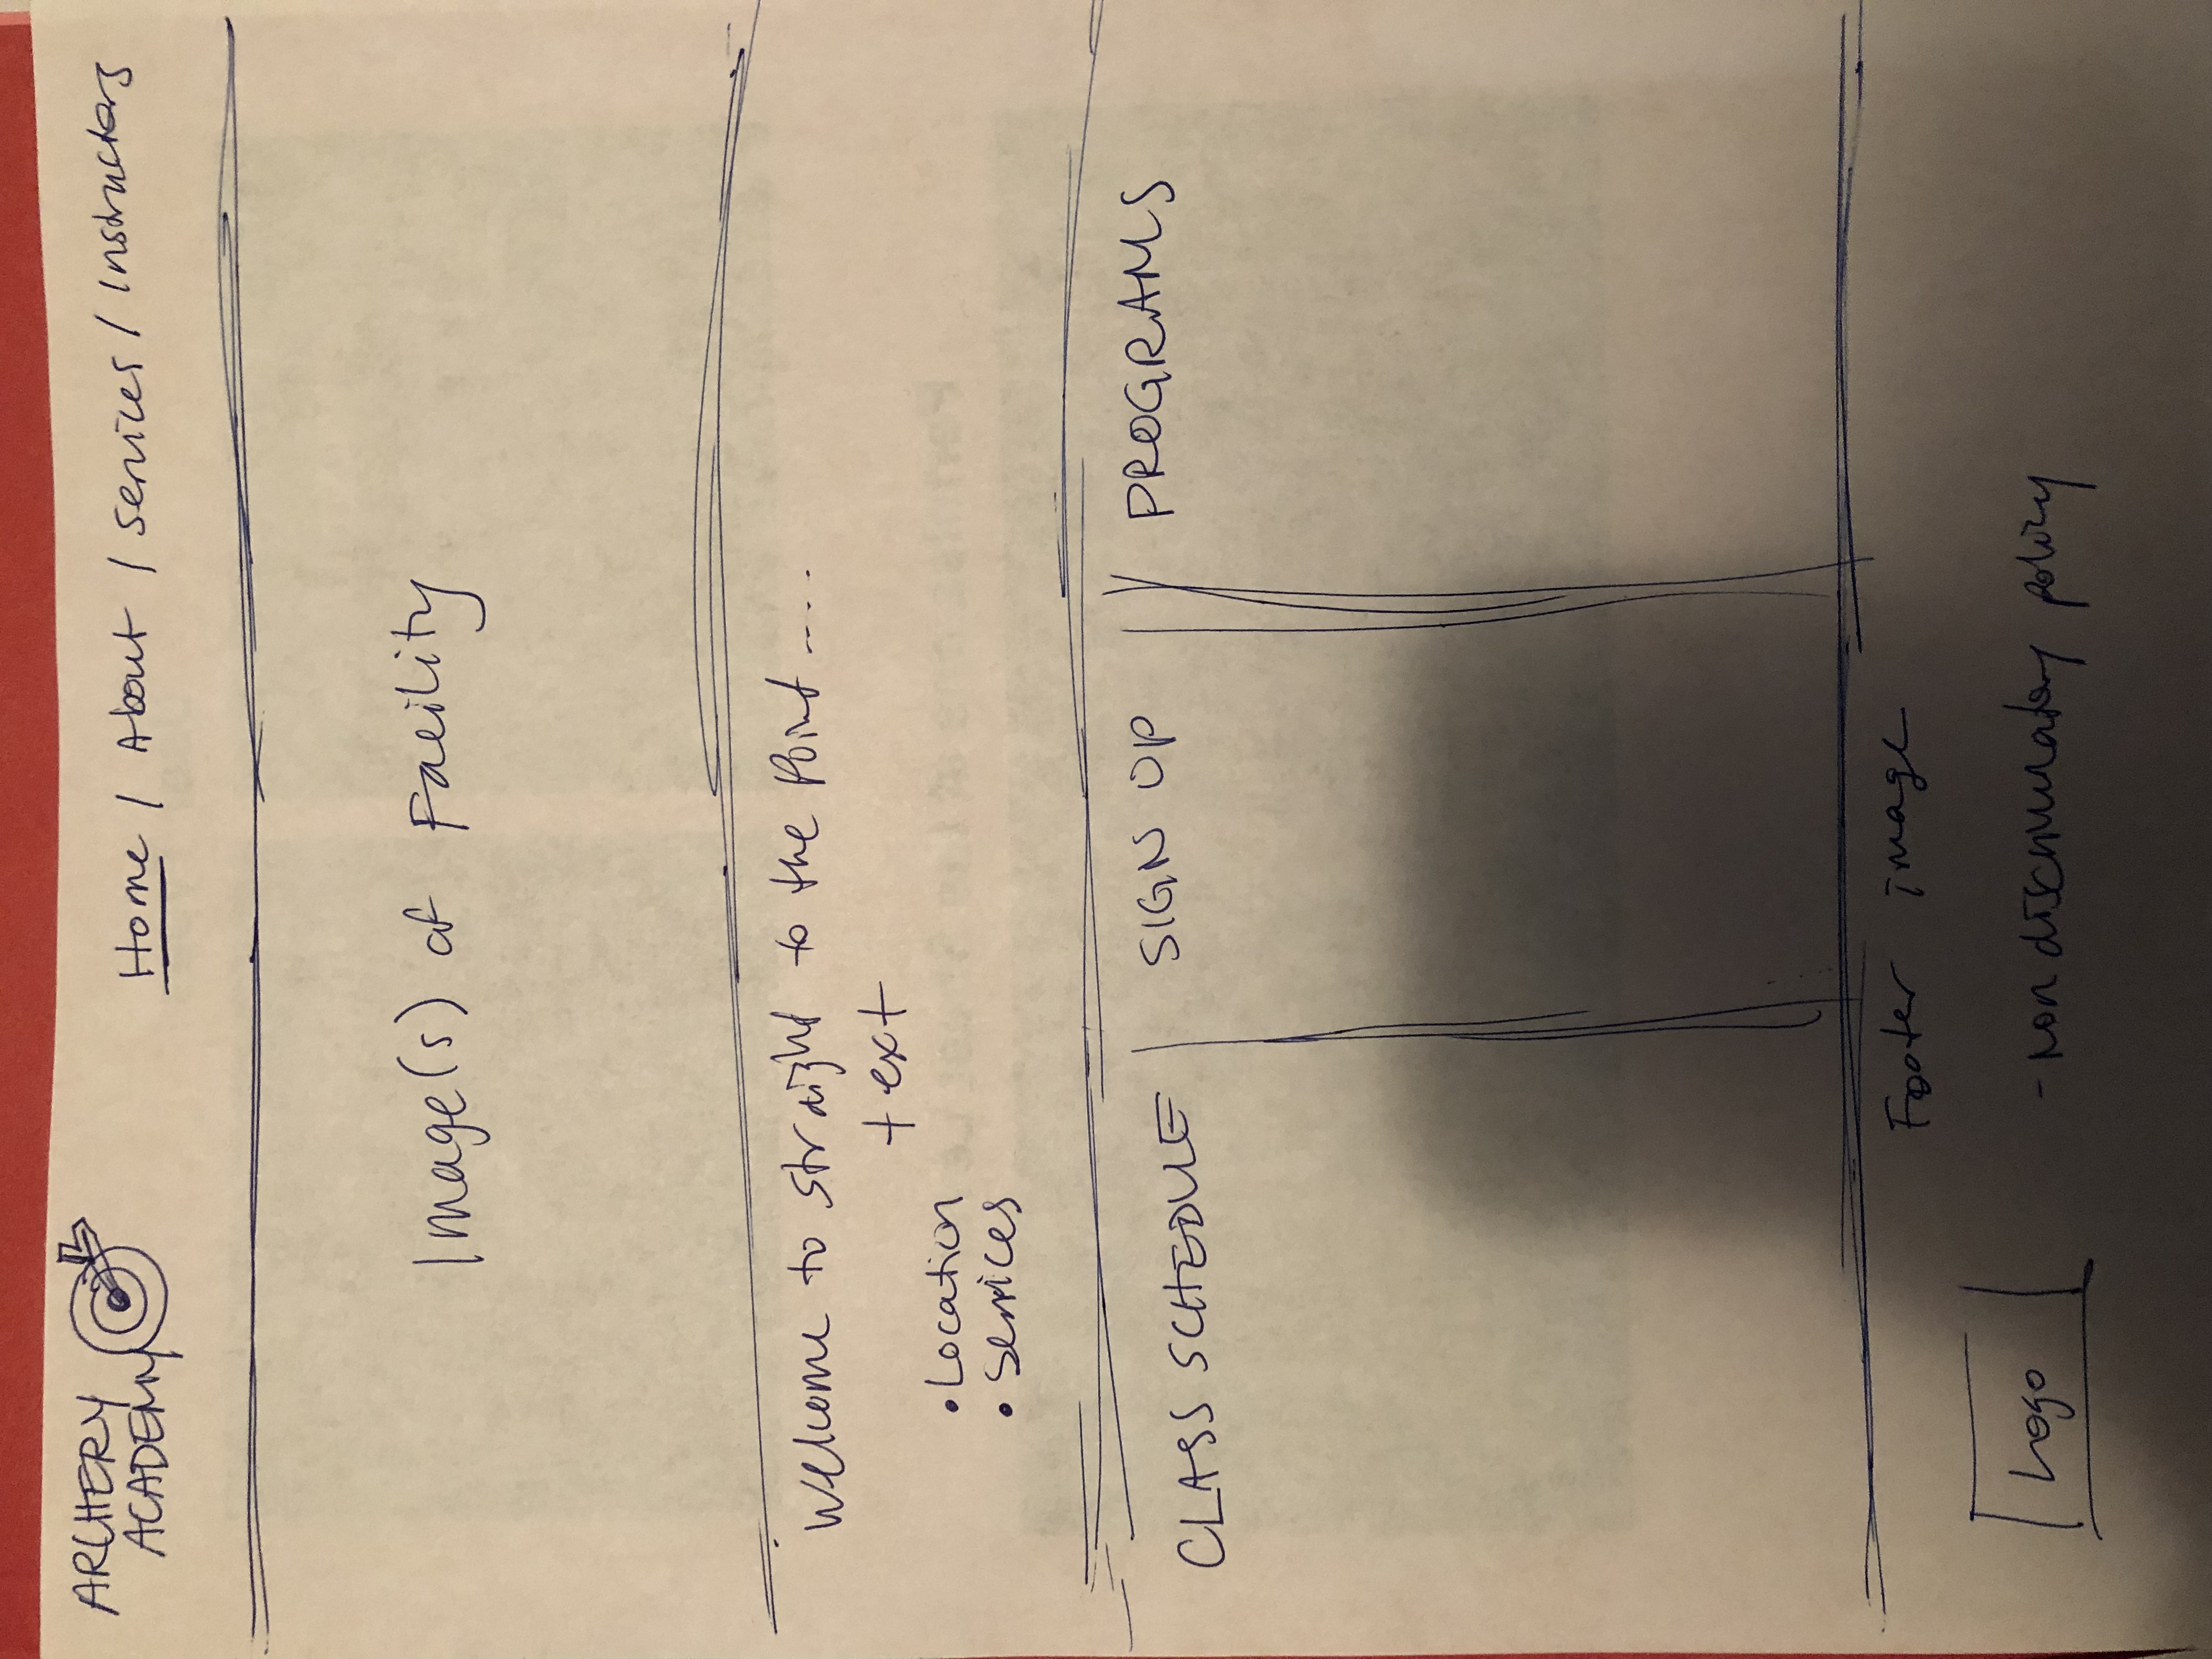 ARCHERY
ACADEMY
Home / About / Services / Instructors
Image(s) of Facility
Welcome to straight to the Point ....
text
• Location
• Services
CLASS SCHEDULE
SIGN UP
PROGRAMS
Footer image
Logo
- Non discriminatory policy